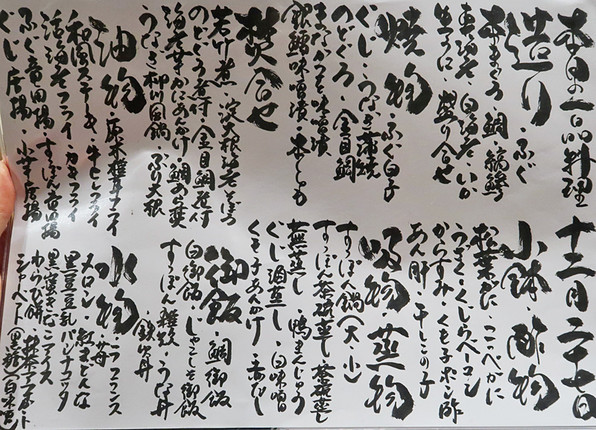 本日の一品料理
十二月二十七日
造り・ふぐ
本まぐろ・鯛・
車海老・白海老・いか
生うに・盛り合せ
焼物・ふぐ白子
ぐじ・うなぎ蒲焼
のどぐろ・金目鯛
まながつお味噌漬
味噌漬・
焚合せ
若竹煮・淀大根海老そぼろ
のどぐろ煮付・金目鯛煮付
海老芋かにあんかけ・鯛あら焚
うなぎ柳川風鍋・ぶり大根
油物
和風ステーキ・牛ヒレフライ
活海老フライ・カキフライ
ふぐ唐揚・すっぽん唐揚
ぐじ唐揚・小芋唐揚
小鉢・酢物
松葉がに・こっぺがに
うざく・くじらベーコン
からすみ・くも子ポン酢
あん肝・干しこの子
吸物・蒸物
すっぽん鍋(大・小)
すっぽん茶碗蒸し・茶碗蒸し
蕪蒸し・鴨まんじゅう
ぐじ酒蒸し・白味噌
くも子あんかけ・赤だし
御飯・鯛御飯
白御飯・じゃこしそ御飯
すっぽん雑炊・うなぎ丼
鉄火丼
水物・ラフランス
メロン・紅まどんな
苺
黒豆豆乳パンナコッタ
黒糖きなこアイス
わらび餅・抹茶アフォガート
シャーベット(黒糖/白味噌)